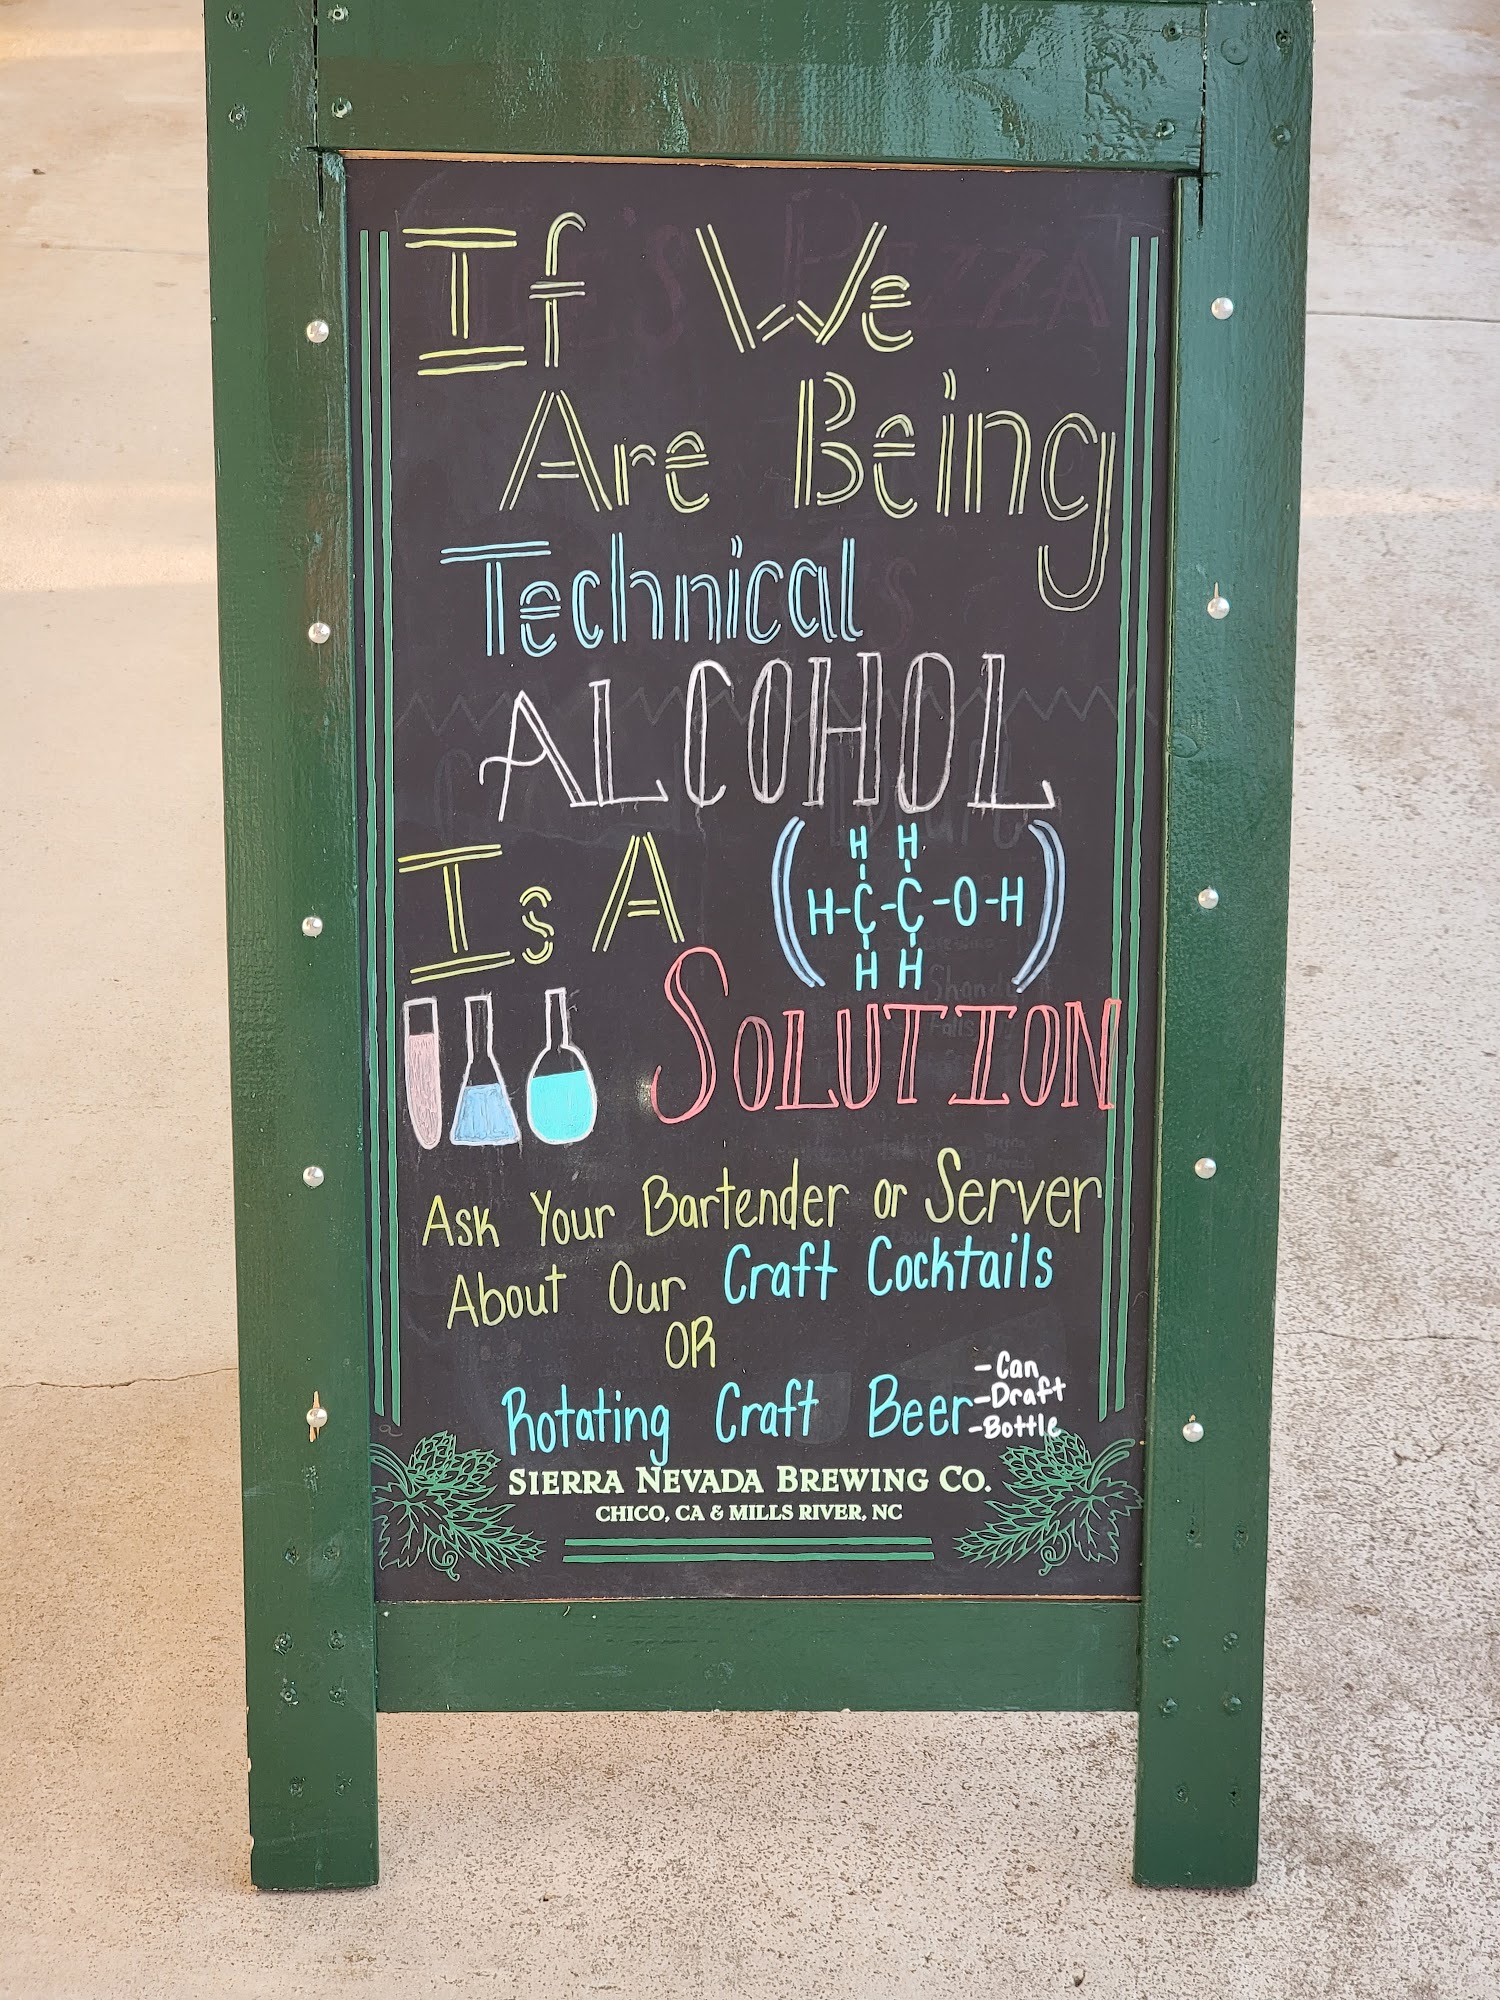 If We
Are Being
Technical
ALCOHOL
Is A
H H
H-C-C-O-H
H H
SOLUTION
Ask Your Bartender or Server
About Our Craft Cocktails
OR
Rotating Craft Beer
-Can
-Draft
-Bottle
SIERRA NEVADA BREWING CO.
CHICO, CA & MILLS RIVER, NC